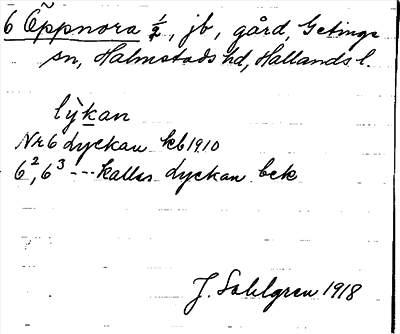 6 Öppnora 1/2, jb, gård, Getinge
sn, Halmstads hd, Hallands l.
lýkan
Nr 6 Lyckan kb 1910
6², 6³ --- kallas Lyckan bck
J. Sahlgren 1918